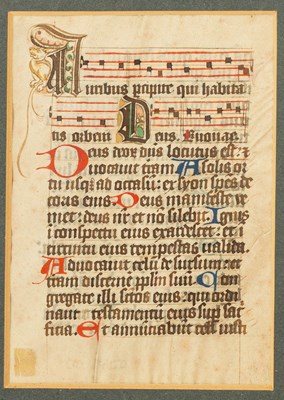 Auribus p̄cipite qui habita
tis orbem Deus. Euouae.
Deus deor̄ dn̄s locutus est: ⁊
vocauit terram A solis or
tu usq̨ ad occasū: ex syon spēs de
coris eius Deus manifeste ve
niet: deus nr̄ et nō silebit Ignis
i conspectu eius exardescet: et i
circuitu eius tempestas valida
Aduocauit celū de sursum: et
terram discerne ppl̄m suū Con
gregate illi sc̄tos eius: qui ordi
naūt testamentū eius sup̄ sac
ficia. Et annūciabūt celi iusti